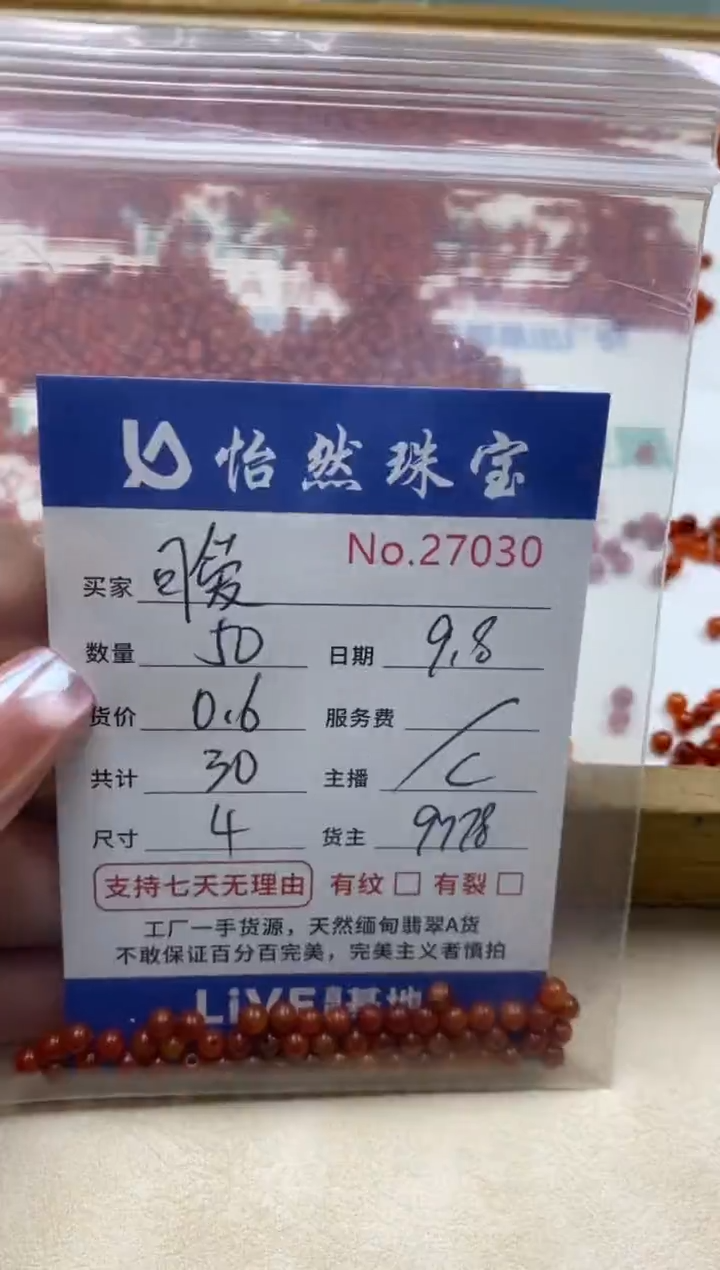 怡然珠宝
No.27030
买家 可爱
数量 50 日期 9.8
货价 0.6 服务费 /
共计 30 主播 C
尺寸 4 货主 9778
支持七天无理由 有纹 □ 有裂 □
工厂一手货源，天然缅甸翡翠A货
不敢保证百分百完美，完美主义者慎拍
LiVE 基地